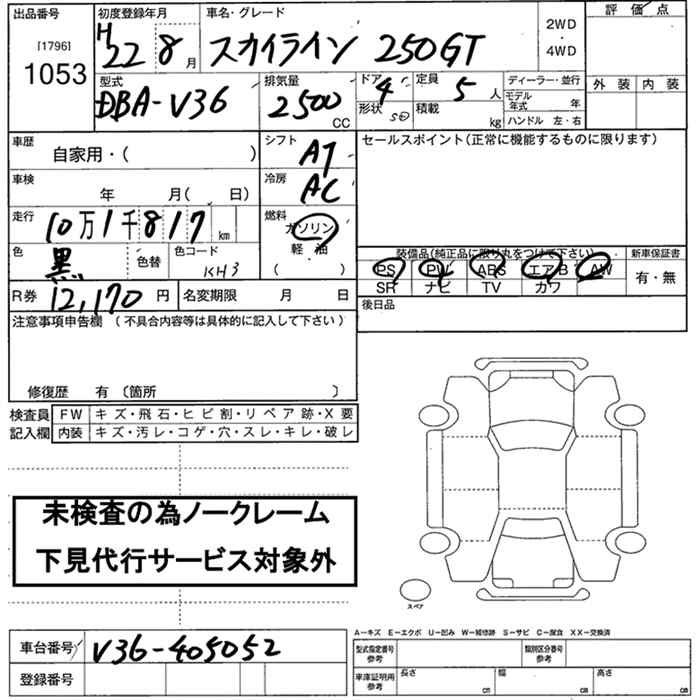 出品番号 初度登録年月 車名・グレード 2WD・4WD 評価点
[1796] 1053 H22 8月 スカイライン 250GT 外装 内装
型式 排気量 ドア 4 定員 5人 ディーラー・並行
DBA-V36 2500 CC 形状 SD 積載 kg モデル年式 年
ハンドル 左・右
車歴 シフト セールスポイント(正常に機能するものに限ります)
自家用・( ) AT
車検 冷房
年 月( 日) AC
走行 燃料
10万1千817 km ガソリン
色 色コード 軽・油 装備品(純正品に限り丸をつけて下さい) 新車保証書
黒 色替 KH3 ( ) PS PW ABS エアB AW 有・無
SR ナビ TV カワ
R券 12,170円 名変期限 月 日 後日品
注意事項申告欄 (不具合内容等は具体的に記入して下さい)
修復歴 有 〔箇所 〕
検査員 FW キズ・飛石・ヒビ割・リペア跡・X要
記入欄 内装 キズ・汚レ・コゲ・穴・スレ・キレ・破レ
未検査の為ノークレーム
下見代行サービス対象外
スペア
A-キズ E-エクボ U-凹み W-補修跡 S-サビ C-腐食 XX-交換済
車台番号 V36-405052 型式指定番号 参考 類別区分番号 参考
登録番号 車庫証明用 参考 長さ cm 幅 cm 高さ cm